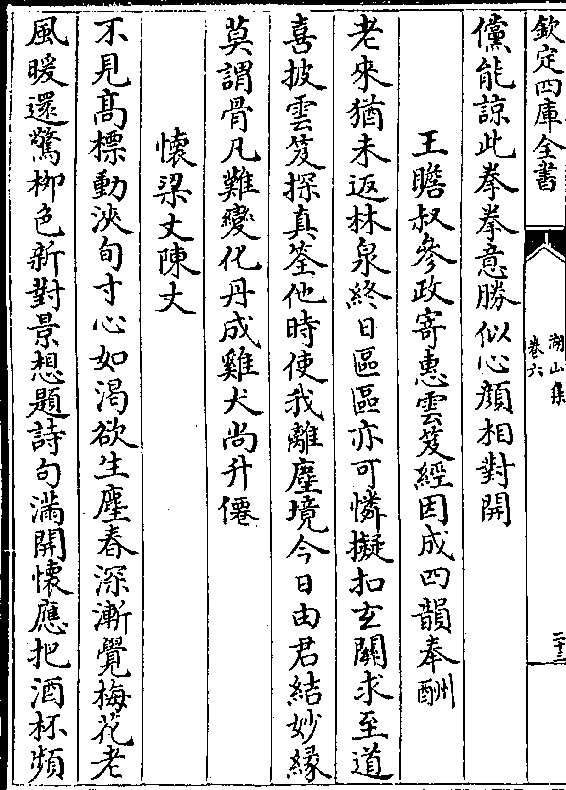 欽定四庫全書
湖山集
卷六
二十三
儻能諒此拳拳意勝似心顔相對開
王瞻叔參政寄惠雲笈經因成四韻奉酬
老來猶未返林泉終日區區亦可憐擬扣玄關求至道
喜披雲笈探真筌他時使我離塵境今日由君結妙縁
莫謂骨凡難變化丹成雞犬尚升僊
懷梁丈陳丈
不見髙標動浹旬寸心如渴欲生塵春深漸覺梅花老
風暖還驚栁色新對景想題詩句滿開懷應把酒杯頻